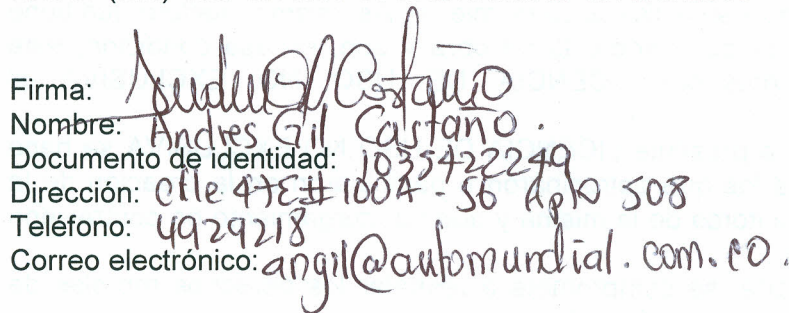 Firma: Andres Gil Castaño
Nombre: Andres Gil Castaño.
Documento de identidad: 1035422249
Dirección: clle 47E# 100A - 56 Apto 508
Teléfono: 4929218
Correo electrónico: angil@automundial.com.co.